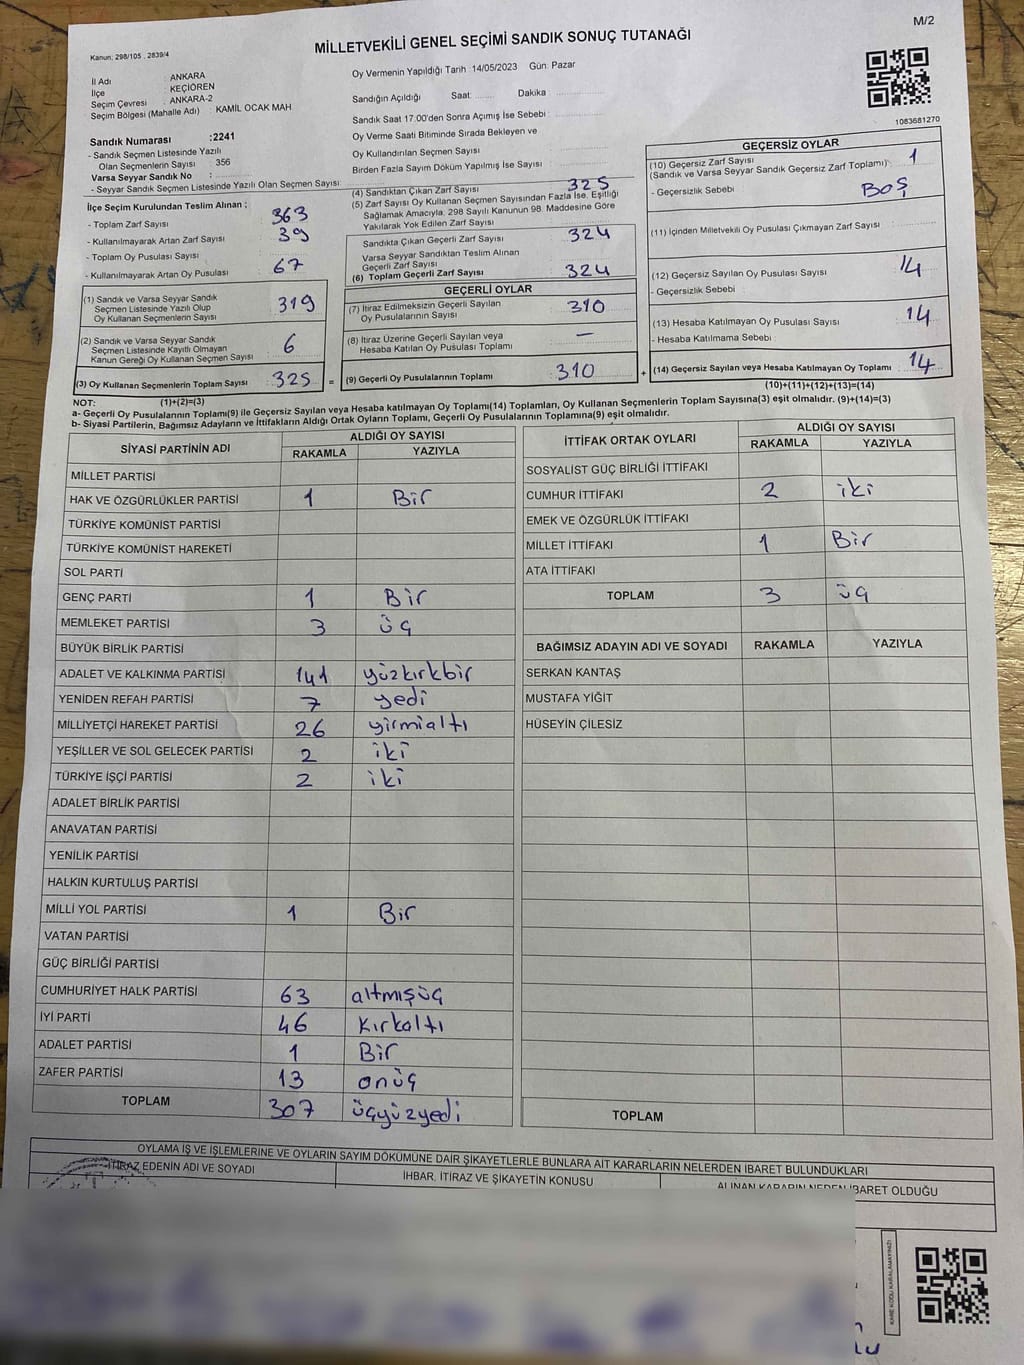 M/2
Kanun: 298/105 . 2839/4
MİLLETVEKİLİ GENEL SEÇİMİ SANDIK SONUÇ TUTANAĞI
İl Adı : ANKARA
İlçe : KEÇİÖREN
Seçim Çevresi : ANKARA-2
Seçim Bölgesi (Mahalle Adı) : KAMİL OCAK MAH
Sandık Numarası :2241
- Sandık Seçmen Listesinde Yazılı
Olan Seçmenlerin Sayısı : 356
Varsa Seyyar Sandık No :
- Seyyar Sandık Seçmen Listesinde Yazılı Olan Seçmen Sayısı:
İlçe Seçim Kurulundan Teslim Alınan ;
- Toplam Zarf Sayısı : 363
- Kullanılmayarak Artan Zarf Sayısı : 39
- Toplam Oy Pusulası Sayısı :
- Kullanılmayarak Artan Oy Pusulası : 67
(1) Sandık ve Varsa Seyyar Sandık
Seçmen Listesinde Yazılı Olup
Oy Kullanan Seçmenlerin Sayısı : 319
(2) Sandık ve Varsa Seyyar Sandık
Seçmen Listesinde Kayıtlı Olmayan
Kanun Gereği Oy Kullanan Seçmen Sayısı : 6
(3) Oy Kullanan Seçmenlerin Toplam Sayısı : 325
(1)+(2)=(3)
Oy Vermenin Yapıldığı Tarih :14/05/2023 Gün: Pazar
Sandığın Açıldığı Saat: Dakika :
Sandık Saat 17.00'den Sonra Açımış İse Sebebi :
Oy Verme Saati Bitiminde Sırada Bekleyen ve
Oy Kullandırılan Seçmen Sayısı :
Birden Fazla Sayım Döküm Yapılmış İse Sayısı :
(4) Sandıktan Çıkan Zarf Sayısı : 325
(5) Zarf Sayısı Oy Kullanan Seçmen Sayısından Fazla İse, Eşitliği
Sağlamak Amacıyla, 298 Sayılı Kanunun 98. Maddesine Göre
Yakılarak Yok Edilen Zarf Sayısı :
Sandıkta Çıkan Geçerli Zarf Sayısı : 324
Varsa Seyyar Sandıktan Teslim Alınan
Geçerli Zarf Sayısı :
(6) Toplam Geçerli Zarf Sayısı : 324
GEÇERLİ OYLAR
(7) İtiraz Edilmeksizin Geçerli Sayılan
Oy Pusulalarının Sayısı : 310
(8) İtiraz Üzerine Geçerli Sayılan veya
Hesaba Katılan Oy Pusulası Toplamı : —
= (9) Geçerli Oy Pusulalarının Toplamı : 310 +
1083681270
GEÇERSİZ OYLAR
(10) Geçersiz Zarf Sayısı
(Sandık ve Varsa Seyyar Sandık Geçersiz Zarf Toplamı) : 1
- Geçersizlik Sebebi : BOŞ
(11) İçinden Milletvekili Oy Pusulası Çıkmayan Zarf Sayısı :
(12) Geçersiz Sayılan Oy Pusulası Sayısı : 14
- Geçersizlik Sebebi :
(13) Hesaba Katılmayan Oy Pusulası Sayısı : 14
- Hesaba Katılmama Sebebi :
(14) Geçersiz Sayılan veya Hesaba Katılmayan Oy Toplamı : 14
(10)+(11)+(12)+(13)=(14)
NOT:
a- Geçerli Oy Pusulalarının Toplamı(9) ile Geçersiz Sayılan veya Hesaba katılmayan Oy Toplamı(14) Toplamları, Oy Kullanan Seçmenlerin Toplam Sayısına(3) eşit olmalıdır. (9)+(14)=(3)
b- Siyasi Partilerin, Bağımsız Adayların ve İttifakların Aldığı Ortak Oyların Toplamı, Geçerli Oy Pusulalarının Toplamına(9) eşit olmalıdır.
SİYASİ PARTİNİN ADI ALDIĞI OY SAYISI
RAKAMLA YAZIYLA
MİLLET PARTİSİ
HAK VE ÖZGÜRLÜKLER PARTİSİ 1 Bir
TÜRKİYE KOMÜNİST PARTİSİ
TÜRKİYE KOMÜNİST HAREKETİ
SOL PARTİ
GENÇ PARTİ 1 Bir
MEMLEKET PARTİSİ 3 üç
BÜYÜK BİRLİK PARTİSİ
ADALET VE KALKINMA PARTİSİ 141 yüzkırkbir
YENİDEN REFAH PARTİSİ 7 yedi
MİLLİYETÇİ HAREKET PARTİSİ 26 yirmialtı
YEŞİLLER VE SOL GELECEK PARTİSİ 2 iki
TÜRKİYE İŞÇİ PARTİSİ 2 iki
ADALET BİRLİK PARTİSİ
ANAVATAN PARTİSİ
YENİLİK PARTİSİ
HALKIN KURTULUŞ PARTİSİ
MİLLİ YOL PARTİSİ 1 Bir
VATAN PARTİSİ
GÜÇ BİRLİĞİ PARTİSİ
CUMHURİYET HALK PARTİSİ 63 altmışüç
İYİ PARTİ 46 kırkaltı
ADALET PARTİSİ 1 Bir
ZAFER PARTİSİ 13 onüç
TOPLAM 307 üçyüzyedi
İTTİFAK ORTAK OYLARI ALDIĞI OY SAYISI
RAKAMLA YAZIYLA
SOSYALİST GÜÇ BİRLİĞİ İTTİFAKI
CUMHUR İTTİFAKI 2 iki
EMEK VE ÖZGÜRLÜK İTTİFAKI
MİLLET İTTİFAKI 1 Bir
ATA İTTİFAKI
TOPLAM 3 üç
BAĞIMSIZ ADAYIN ADI VE SOYADI RAKAMLA YAZIYLA
SERKAN KANTAŞ
MUSTAFA YİĞİT
HÜSEYİN ÇİLESİZ
TOPLAM
OYLAMA İŞ VE İŞLEMLERİNE VE OYLARIN SAYIM DÖKÜMÜNE DAİR ŞİKAYETLERLE BUNLARA AİT KARARLARIN NELERDEN İBARET BULUNDUKLARI
İTİRAZ EDENİN ADI VE SOYADI İHBAR, İTİRAZ VE ŞİKAYETİN KONUSU ALINAN KARARIN NEDEN İBARET OLDUĞU
KARE KODU KARALAMAYINIZ!